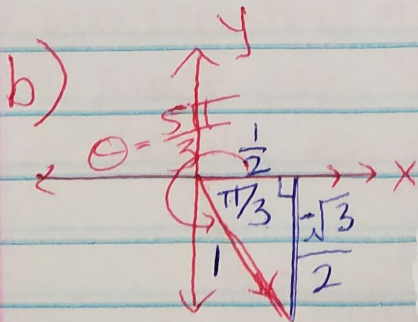 y
b)
θ = 5π/3
1/2
x
π/3
-√3/2
1